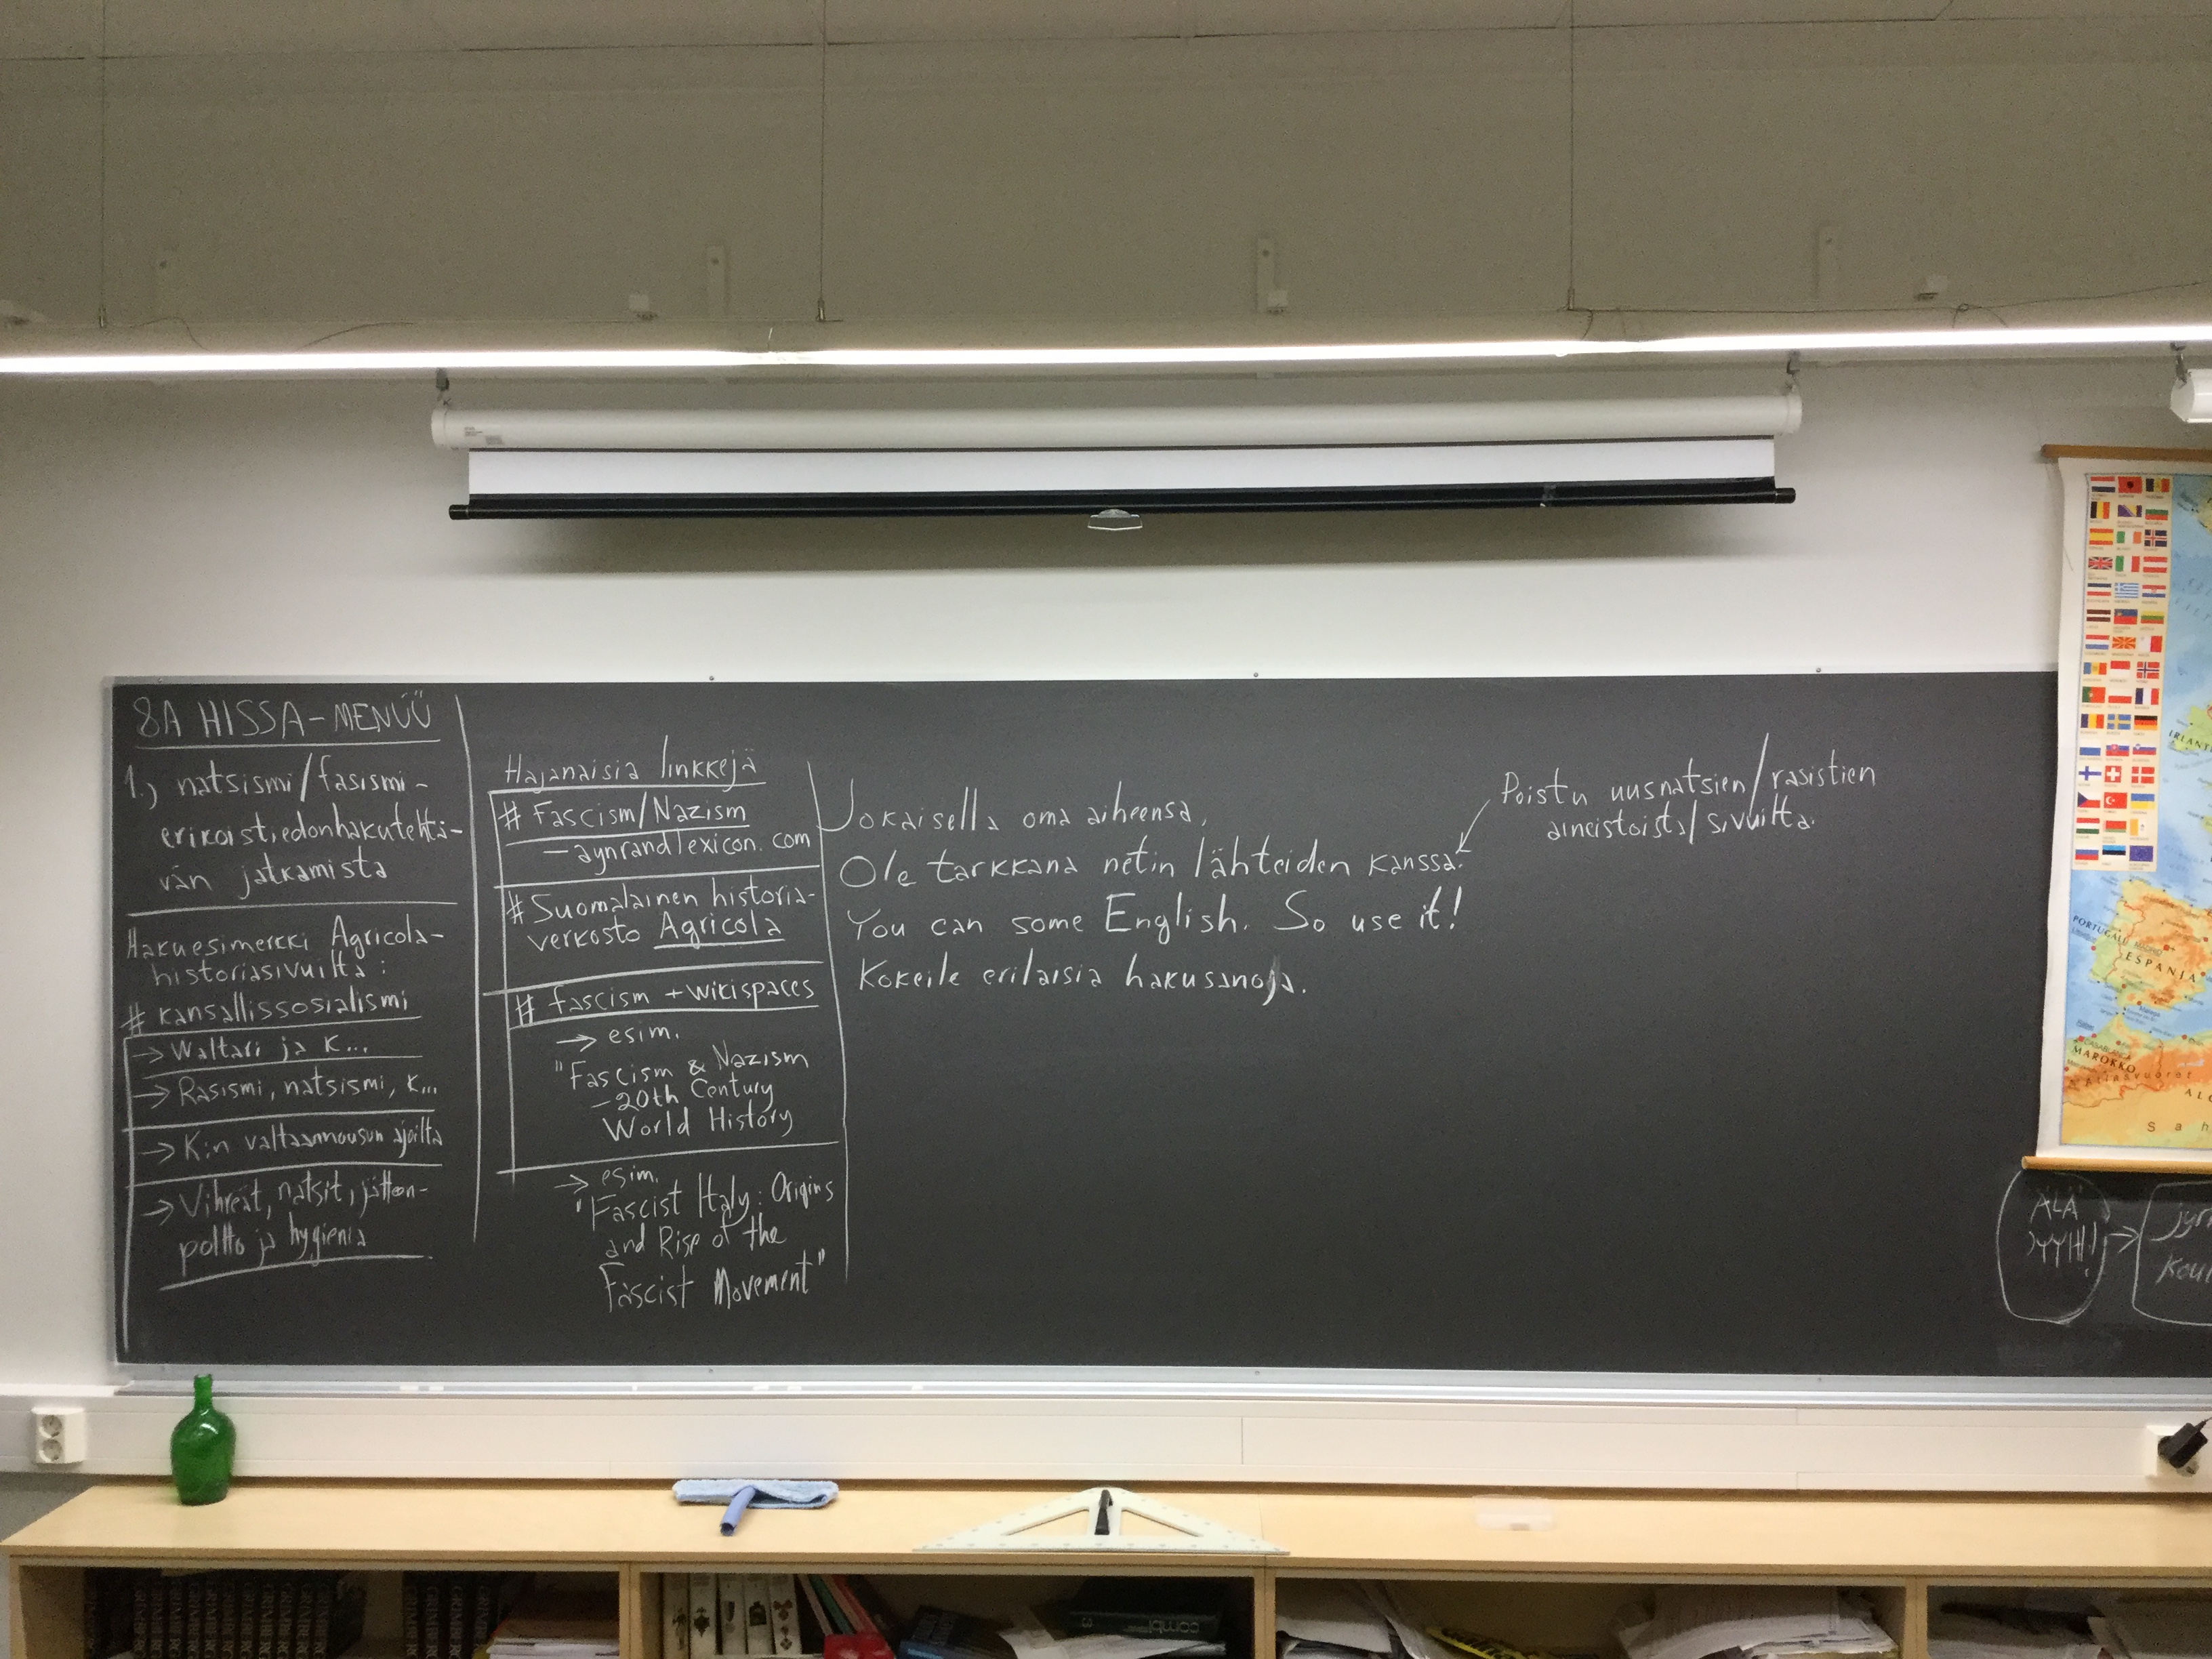 8A HISSA-MENÜÜ
1.) natsismi/fasismi-
erikoistiedonhakutehtä-
vän jatkamista
Hakuesimerkki Agricola-
historiasivuilta:
# kansallissosialismi
→ Waltari ja K...
→ Rasismi, natsismi, K...
→ K:n valtaannousun ajoilta
→ Vihreät, natsit, jätteen-
poltto ja hygienia
Hajanaisia linkkejä
# Fascism/Nazism
- aynrandlexicon.com
# Suomalainen historia-
verkosto Agricola
# fascism + wikispaces
→ esim.
"Fascism & Nazism
- 20th Century
World History
→ esim.
"Fascist Italy: Origins
and Rise of the
Fascist Movement"
Jokaisella oma aiheensa.
Ole tarkkana netin lähteiden kanssa.
You can some English. So use it!
Kokeile erilaisia hakusanoja.
Poistu uusnatsien/rasistien
aineistoista/sivuilta.
IRLANTI
PORTUGALI
MADRID
ESPANJA
MAROKKO
ÄLÄ
GRIMBERG
GRIMBERG
GRIMBERG
GRIMBERG
GRIMBERG
GRIMBERG
combi
3